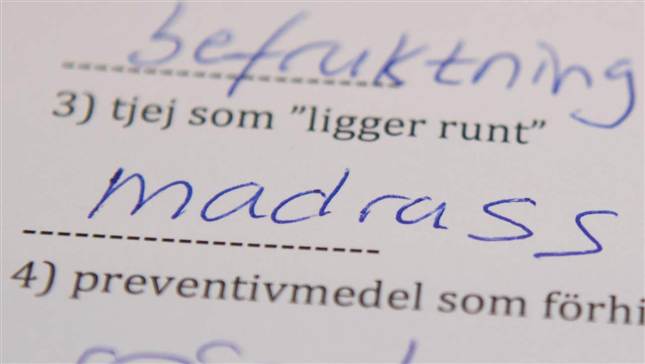 befruktning
3) tjej som "ligger runt"
madrass
4) preventivmedel som förhi